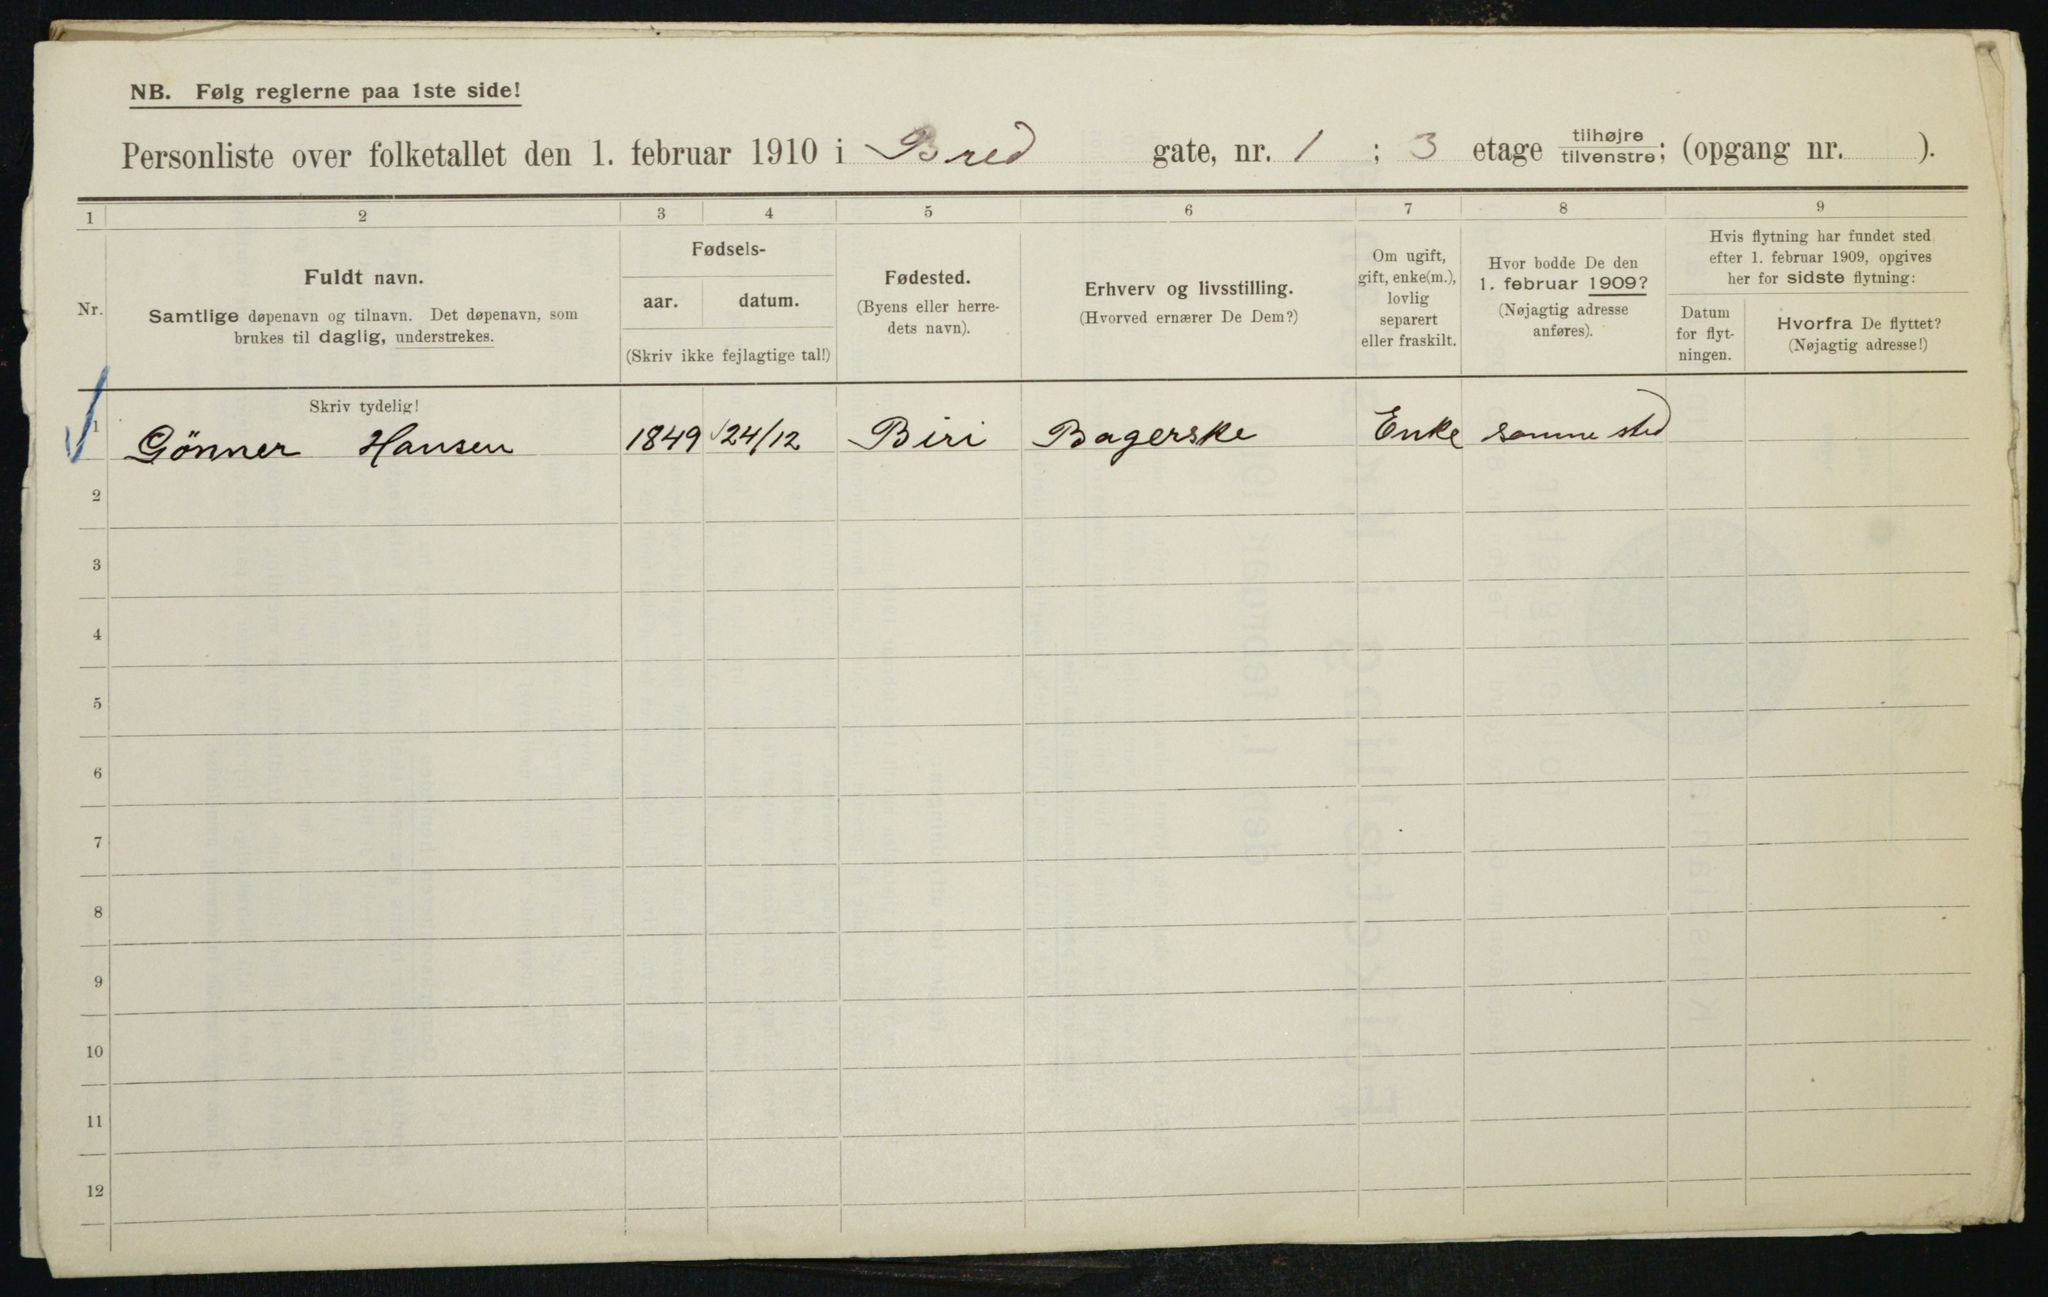 NB. Følg reglerne paa 1ste side!
Personliste over folketallet den 1. februar 1910 i Bred gate, nr. 1 ; 3 etage tilhøjre/tilvenstre; (opgang nr. ).
1 2 3 4 5 6 7 8 9
Nr.
Fuldt navn.
Samtlige døpenavn og tilnavn. Det døpenavn, som
brukes til daglig, understrekes.
Fødsels-
aar. datum.
(Skriv ikke fejlagtige tal!)
Fødested.
(Byens eller herre-
dets navn).
Erhverv og livsstilling.
(Hvorved ernærer De Dem?)
Om ugift,
gift, enke(m.),
lovlig
separert
eller fraskilt.
Hvor bodde De den
1. februar 1909?
(Nøjagtig adresse
anføres).
Hvis flytning har fundet sted
efter 1. februar 1909, opgives
her for sidste flytning:
Datum
for flyt-
ningen.
Hvorfra De flyttet?
(Nøjagtig adresse!)
Skriv tydelig!
1 Gönner Hansen 1849 24/12 Biri Bagerske Enke samme sted
2
3
4
5
6
7
8
9
10
11
12